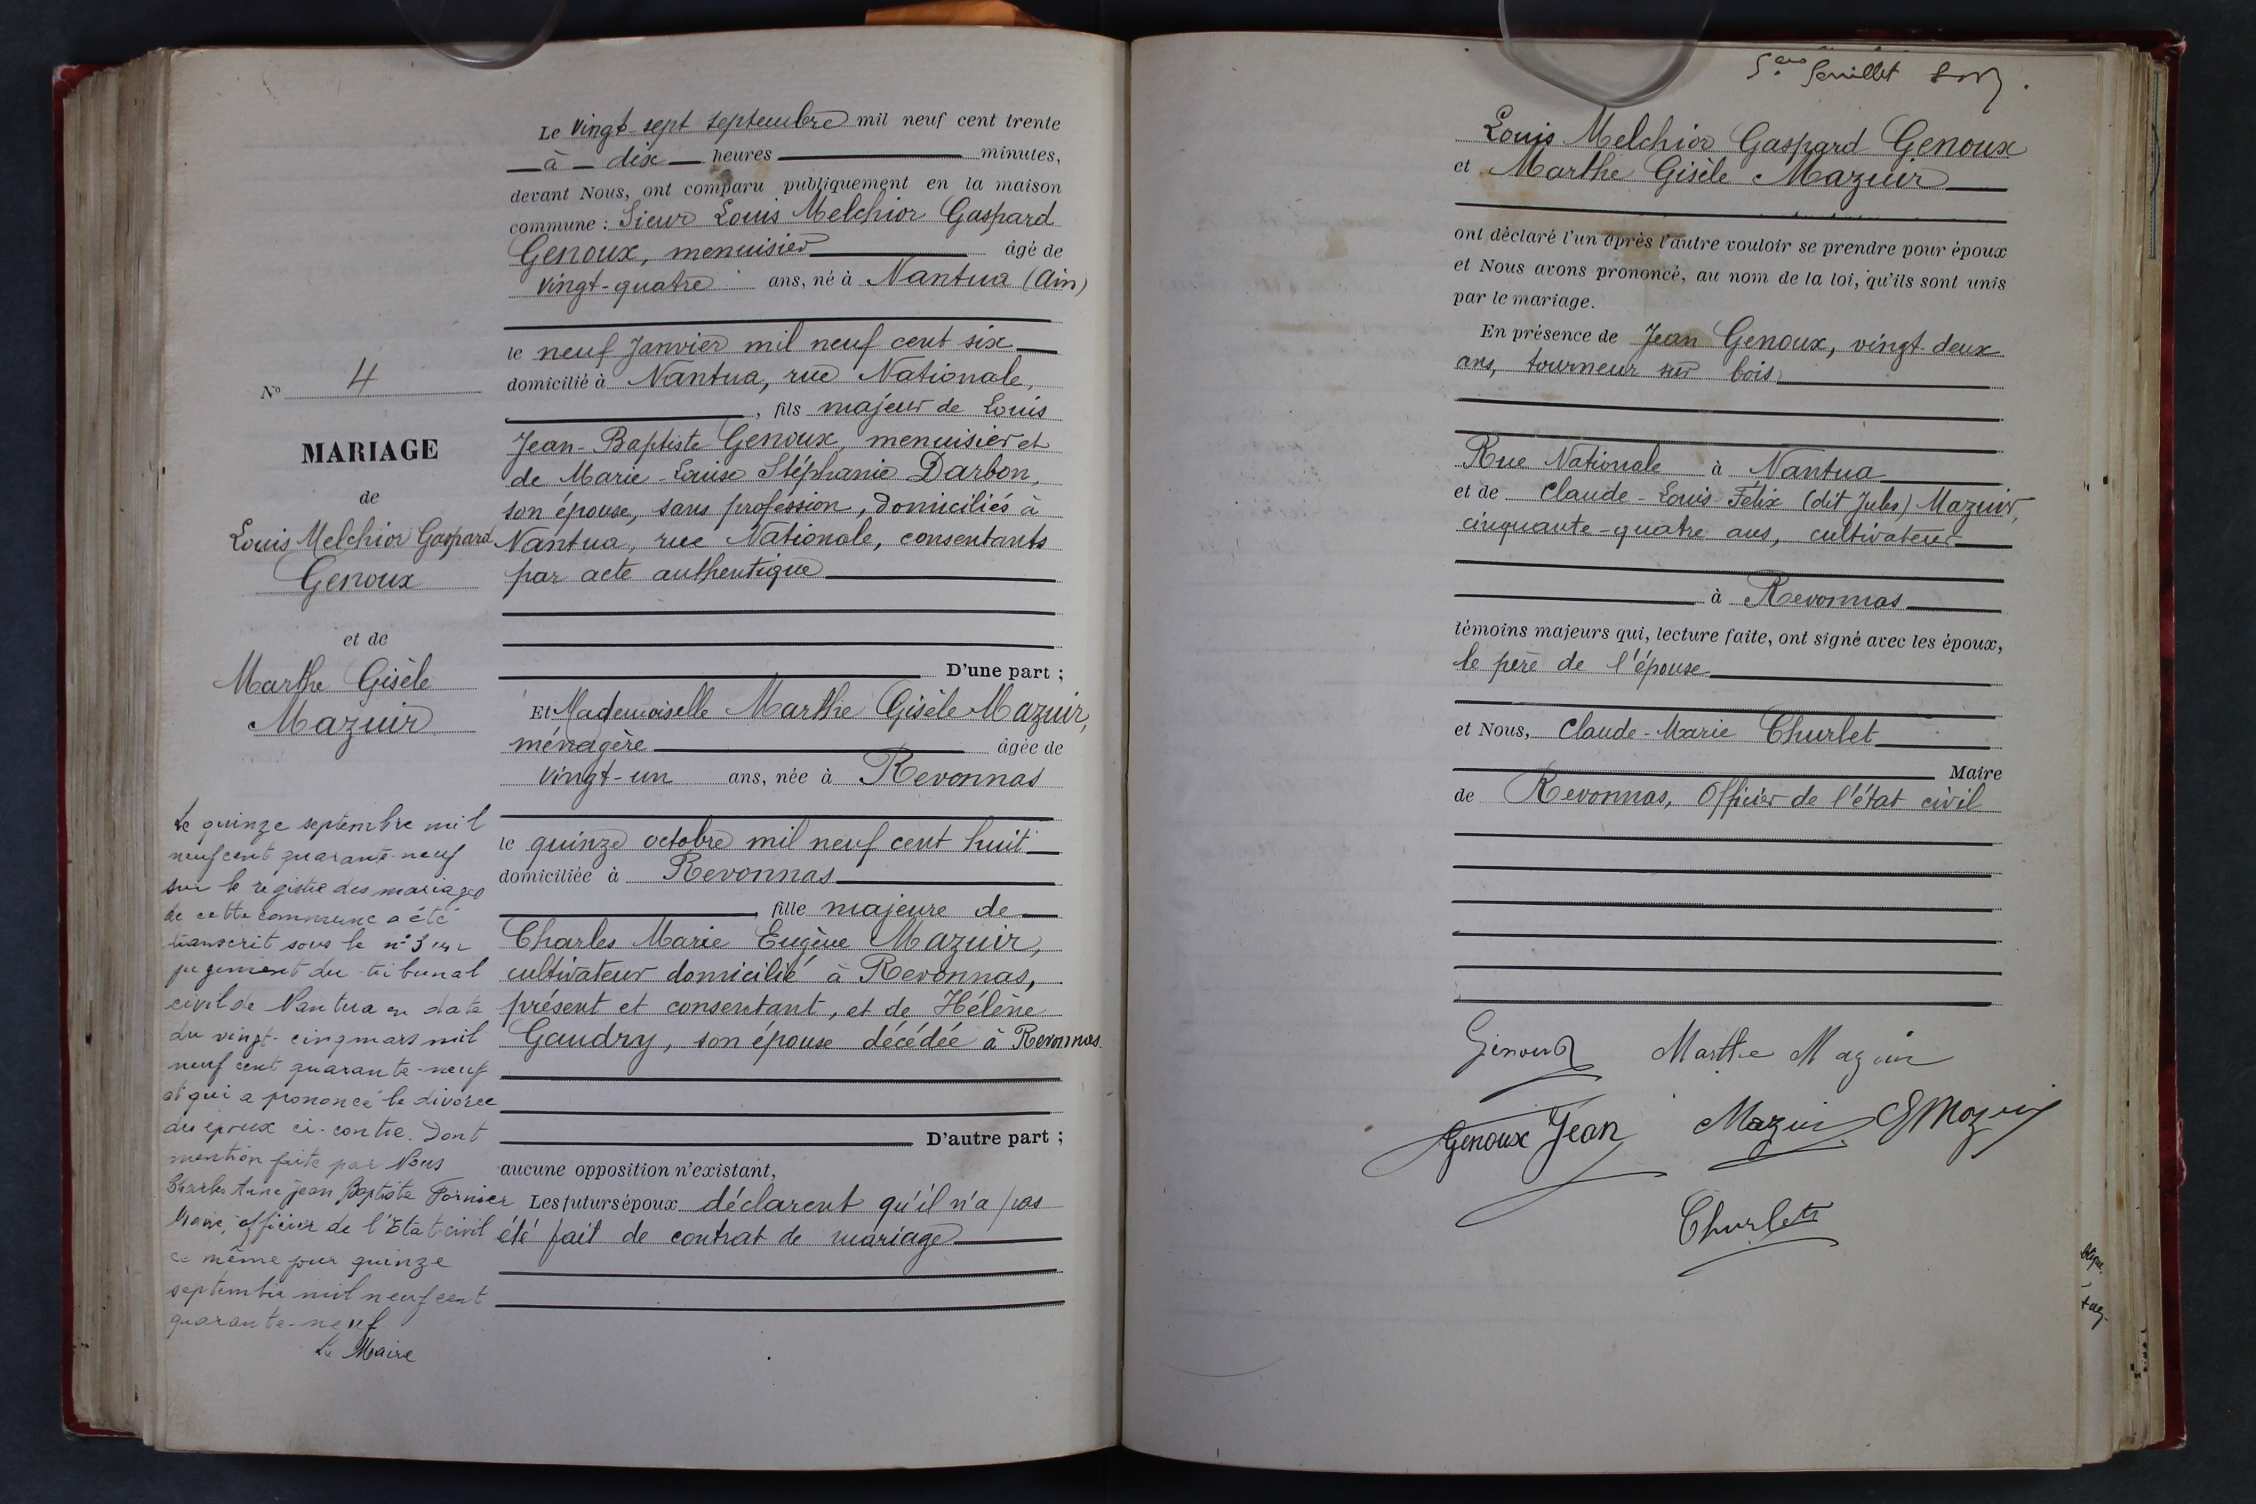 Nº 4
MARIAGE
de
Louis Melchior Gaspard
Genoux
et de
Marthe Gisèle
Mazuir
Le quinze septembre mil
neuf cent quarante-neuf
sur le registre des mariages
de cette commune a été
transcrit sous le n° 3 un
jugement du tribunal
civil de Nantua en date
du vingt-cinq mars mil
neuf cent quarante-neuf
et qui a prononcé le divorce
des époux ci-contre. Dont
mention faite par Nous
Charles Anne Jean Baptiste Fornier
Maire, officier de l'Etat-civil
ce même jour quinze
septembre mil neuf cent
quarante-neuf
Le Maire
Le vingt-sept septembre mil neuf cent trente
à dix heures minutes,
devant Nous, ont comparu publiquement en la maison
commune : Sieur Louis Melchior Gaspard
Genoux, menuisier âgé de
vingt-quatre ans, né à Nantua (Ain)
le neuf Janvier mil neuf cent six
domicilié à Nantua, rue Nationale,
, fils majeur de Louis
Jean-Baptiste Genoux, menuisier et
de Marie-Louise Stéphanie Darbon,
son épouse, sans profession, domiciliés à
Nantua, rue Nationale, consentants
par acte authentique
D'une part ;
Et Mademoiselle Marthe Gisèle Mazuir,
ménagère âgée de
vingt-un ans, née à Revonnas
le quinze octobre mil neuf cent huit
domiciliée à Revonnas
, fille majeure de
Charles Marie Eugène Mazuir,
cultivateur domicilié à Revonnas,
présent et consentant, et de Hélène
Gaudry, son épouse décédée à Revonnas
D'autre part ;
aucune opposition n'existant,
Les futurs époux déclarent qu'il n'a pas
été fait de contrat de mariage
feuillet
Louis Melchior Gaspard Genoux
et Marthe Gisèle Mazuir
ont déclaré l'un après l'autre vouloir se prendre pour époux
et Nous avons prononcé, au nom de la loi, qu'ils sont unis
par le mariage.
En présence de Jean Genoux, vingt-deux
ans, tourneur sur bois
Rue Nationale à Nantua
et de Claude-Louis-Félix (dit Jules) Mazuir,
cinquante-quatre ans, cultivateur
à Revonnas
témoins majeurs qui, lecture faite, ont signé avec les époux,
le père de l'épouse
et Nous, Claude-Marie Churlet
Maire
de Revonnas, Officier de l'état civil
Genoux Marthe Mazuir
Genoux Jean Mazuir EMazuir
Churlet